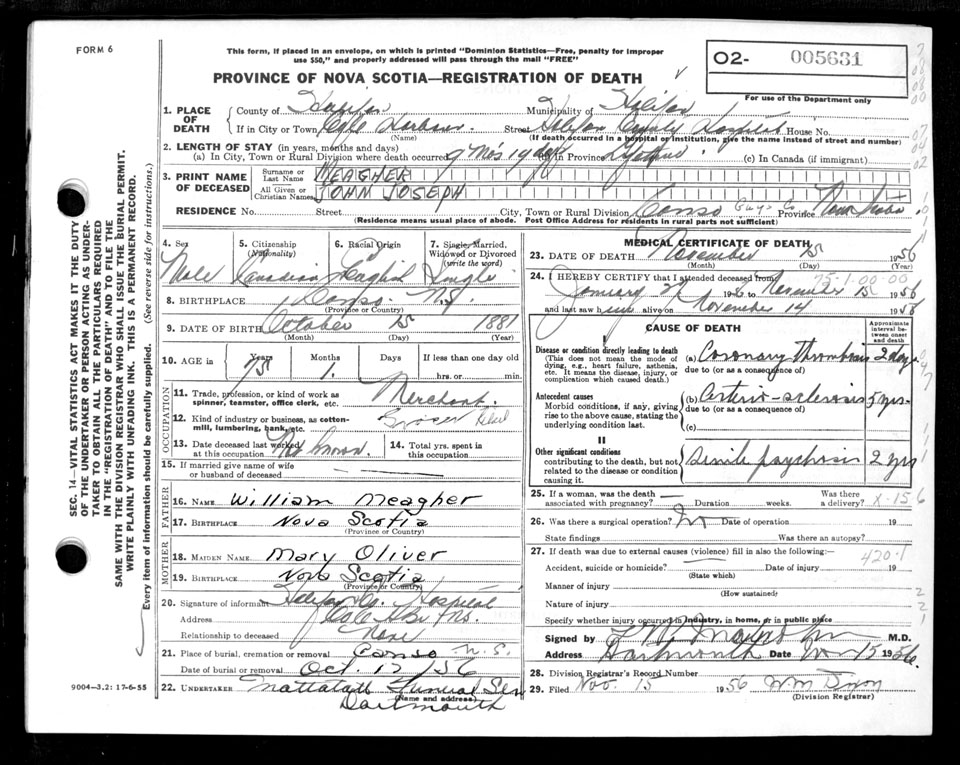 FORM 6
This form, if placed in an envelope, on which is printed "Dominion Statistics—Free, penalty for improper
use $50," and properly addressed will pass through the mail "FREE"
O2- 005631
For use of the Department only
PROVINCE OF NOVA SCOTIA—REGISTRATION OF DEATH
1. PLACE OF DEATH
County of Halifax Municipality of Halifax
If in City or Town Cole Harbour Street Halifax County Hospital House No.
(Name) (If death occurred in a hospital or institution, give the name instead of street and number)
2. LENGTH OF STAY (in years, months and days)
(a) In City, Town or Rural Division where death occurred 9 Mos 19 days (b) in Province Lifetime (c) In Canada (if immigrant)
3. PRINT NAME OF DECEASED
Surname or Last Name MEAGHER
All Given or Christian Names JOHN JOSEPH
RESIDENCE No. Street City, Town or Rural Division Canso Guys Co Province Nova Scotia
(Residence means usual place of abode. Post Office Address for residents in rural parts not sufficient)
4. Sex Male
5. Citizenship (Nationality) Canadian
6. Racial Origin
7. Single, Married, Widowed or Divorced (write the word) Single
8. BIRTHPLACE Canso N.S.
(Province or Country)
9. DATE OF BIRTH October 15 1881
(Month) (Day) (Year)
10. AGE in Years 75 Months 1 Days If less than one day old hrs. or min.
OCCUPATION
11. Trade, profession, or kind of work as spinner, teamster, office clerk, etc. Merchant
12. Kind of industry or business, as cotton-mill, lumbering, bank, etc. Grocer
13. Date deceased last worked at this occupation Not known
14. Total yrs. spent in this occupation
15. If married give name of wife or husband of deceased
FATHER
16. NAME William Meagher
17. BIRTHPLACE Nova Scotia
(Province or Country)
MOTHER
18. MAIDEN NAME Mary Oliver
19. BIRTHPLACE Nova Scotia
(Province or Country)
20. Signature of informant Halifax Co. Hospital
Address Cole Hbr NS.
Relationship to deceased None
21. Place of burial, cremation or removal Canso N.S.
Date of burial or removal Oct. 17/56
22. UNDERTAKER Mattatall Funeral
(Name and address)
Dartmouth
9004—3.2: 17-6-55
MEDICAL CERTIFICATE OF DEATH
23. DATE OF DEATH November 15 1956
(Month) (Day) (Year)
24. I HEREBY CERTIFY that I attended deceased from
January 27 1956 to November 15 1956
and last saw him alive on November 14 1956
CAUSE OF DEATH
Approximate interval between onset and death
Disease or condition directly leading to death
(This does not mean the mode of dying, e.g., heart failure, asthenia, etc. It means the disease, injury, or complication which caused death.)
(a) Coronary thrombosis 2 days
due to (or as a consequence of)
Antecedent causes
Morbid conditions, if any, giving rise to the above cause, stating the underlying condition last.
(b) Arterio-sclerosis 5 yrs.
due to (or as a consequence of)
(c)
II
Other significant conditions
contributing to the death, but not related to the disease or condition causing it.
Senile psychosis 2 yrs
25. If a woman, was the death associated with pregnancy? Duration weeks. Was there a delivery? X-156
26. Was there a surgical operation? No Date of operation 19
State findings Was there an autopsy?
27. If death was due to external causes (violence) fill in also the following:— 420.1
Accident, suicide or homicide? Date of injury 19
(State which)
Manner of injury
(How sustained)
Nature of injury
Specify whether injury occurred in industry, in home, or in public place
Signed by M.D.
Address Dartmouth Date Nov 15 1956.
28. Division Registrar's Record Number
29. Filed Nov. 15 1956 Wm Dyon
(Division Registrar)
SEC. 14—VITAL STATISTICS ACT MAKES IT THE DUTY
OF THE UNDERTAKER OR PERSON ACTING AS UNDER-
TAKER TO OBTAIN ALL THE PARTICULARS REQUIRED
IN THE "REGISTRATION OF DEATH" AND TO FILE THE
SAME WITH THE DIVISION REGISTRAR WHO SHALL ISSUE THE BURIAL PERMIT.
WRITE PLAINLY WITH UNFADING INK. THIS IS A PERMANENT RECORD.
Every item of information should be carefully supplied. (See reverse side for instructions.)